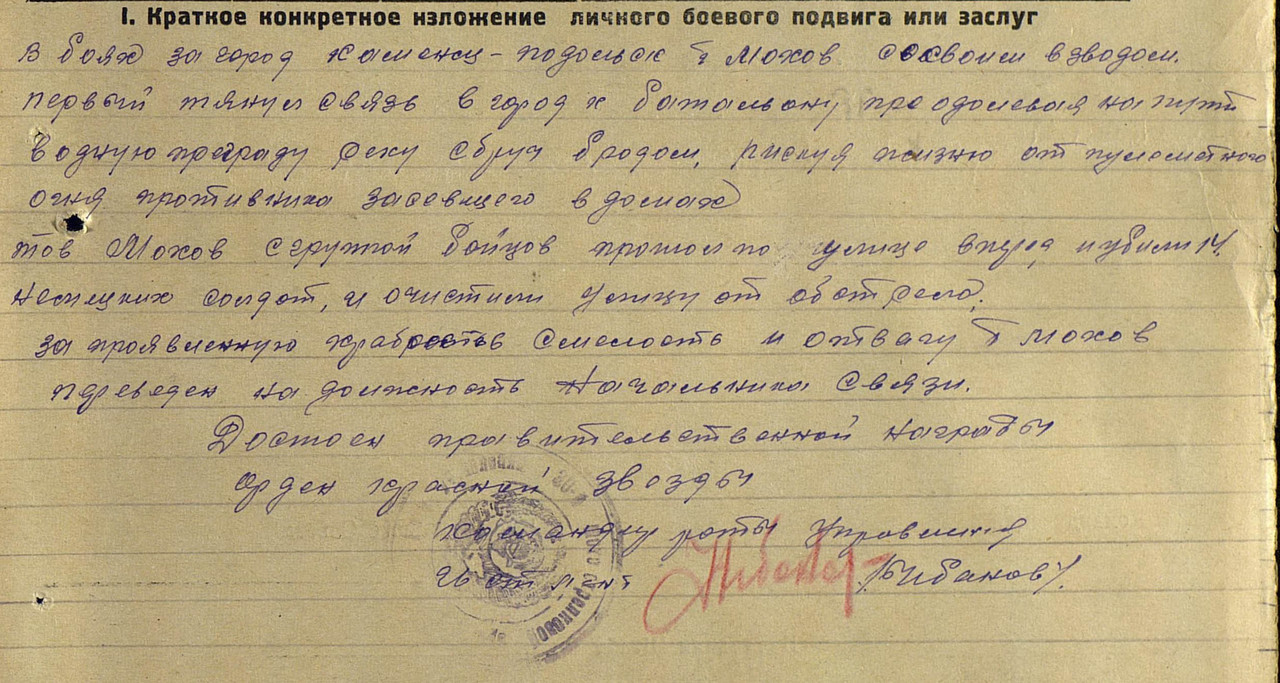 I. Краткое конкретное изложение личного боевого подвига или заслуг
В боях за город Каменец-Подольск т Мохов со своим взводом.
первый тянул связь в город к батальону преодолевая на пути
водную преграду реку Збруч бродом, рискуя жизню от пулеметного
огня противника засевщего в домах
тов Мохов с групой бойцов прошол по улице вперед, и убили 14.
Немецких солдат, и очистили улицу от обстрела.
за проявленную храбрость смелость и отвагу т Мохов
переведен на должность Начальника связи.
Достоен правительственной награды
Орден красной звезды
Командир роты управления
лент